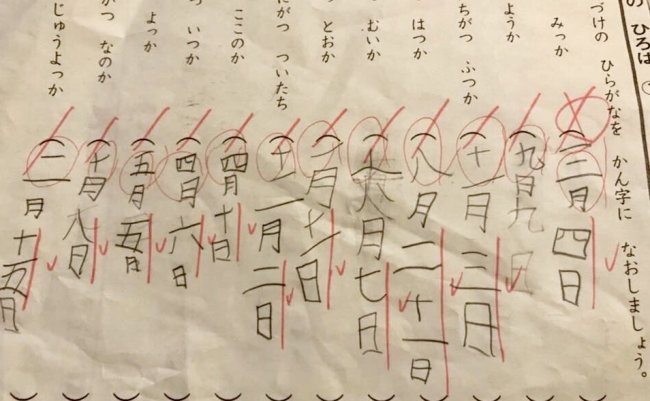 の ひろば
づけの ひらがなを かん字に なおしましょう。
みっか
三月四日
ようか
九日九日
ちがつ ふつか
十一月三日
はつか
八月二十一日
むいか
月七日
とおか
一月十一日
にがつ ついたち
十二月二日
ここのか
四月十日
つ いつか
四月六日
よっか
五月五日
がつ なのか
十月八日
じゅうよっか
二月十五日